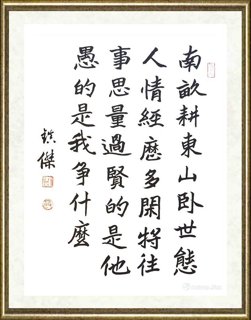 南畝耕東山卧世態
人情經歷多閑將往
事思量過賢的是他
愚的是我争什麼
鎮傑